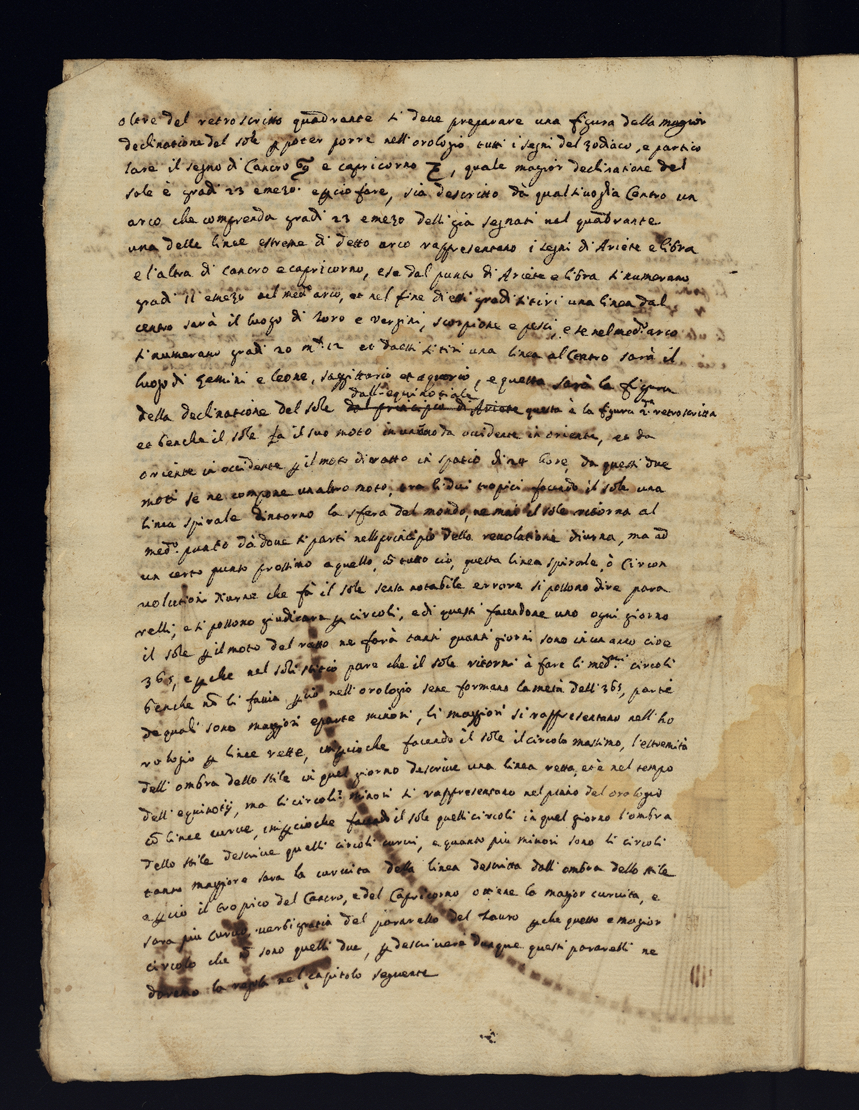 oltre del retroscritto quadrante si deve preparare una figura della magior
declinatione del sole ꝑ poter porre nell'orologio tutti i segni del zodiaco, e partico
lare il segno di Cancro ♋ e capricorno ♑, quale magior declinatione del
sole è gradi 23 e mezo. e ꝑ ciò fare, sia descritto da qualsivoglia Centro un
arco che comprenda gradi 23 e mezo delli già segnati nel quadrante
una delle linee estreme di detto arco rappresentano i segni di Ariete e libra
e l'altra di cancro e capricorno, e se dal punto di Ariete e libra si numerano
gradi 11 e mezo nel med.o arco, et nel fine di essi gradi si tiri una linea dal
centro sarà il luogo di toro e vergini, scorpione e pesci, e se nel med.o arco
si numerano gradi 20 m.ti 12 et da essi si tiri una linea al Centro sarà il
luogo di Gemini e leone, sagittario et aquario, e questa sarà la figura
dall'equinotiale
della declinatione del sole dal principio di Ariete questa è la figura 2.a retroscritta
et benche il sole fa il suo moto in un anno da occidente in oriente, et da
oriente in occidente ꝑ il moto di ratto in spatio di hore, da questi due
moti se ne compone un altro moto, tra li dui tropici facendo il sole una
linea spirale d'intorno la sfera del mondo, ne mai il sole ritorna al
med.o punto da dove si parti nel principio della revolutione diurna, ma ad
un certo punto prossimo a quello, cō tutto ciò, questa linea spirale, ò Circon
volutioni diurne che fà il sole senza notabile errore si possono dire para
relli, e si possono giudicare ꝑ circoli, e di questi facendone uno ogni giorno
il sole ꝑ il moto del ratto ne farà tanti quanti giorni sono in un anno cioe
365, e ꝑche nel solistitio pare che il sole ritorni à fare li med.mi circoli
benche nō li faccia ꝑciò nell'orologio sene formano la metà dell'365, parte
de quali sono maggiori e parte minori, li maggiori si rappresentano nell'ho
rologio ꝑ linee rette, imꝑcioche facendo il sole il circolo massimo, l'estremità
dell'ombra dello stile in quel giorno descrive una linea retta, et è nel tempo
dell'equinotij, ma li circoli minori si rappresentano nel piano del orologio
cō linee curve, imꝑcioche facendo il sole quelli circoli in quel giorno l'ombra
dello stile descrive quelli circoli curvi, e quanto più minori sono li circoli
tanto maggiore sara la curvita della linea descritta dall'ombra dello stile
e ꝑciò il tropico del Cancro, e del Capricorno ottiene la magior curvita, e
sara più curvo verbi gratia del pararello del Tauro ꝑche questo e magior
circolo che nō sono quelli due, ꝑ descrivere dunque questi pararelli ne
daremo la regola nel capitolo seguente